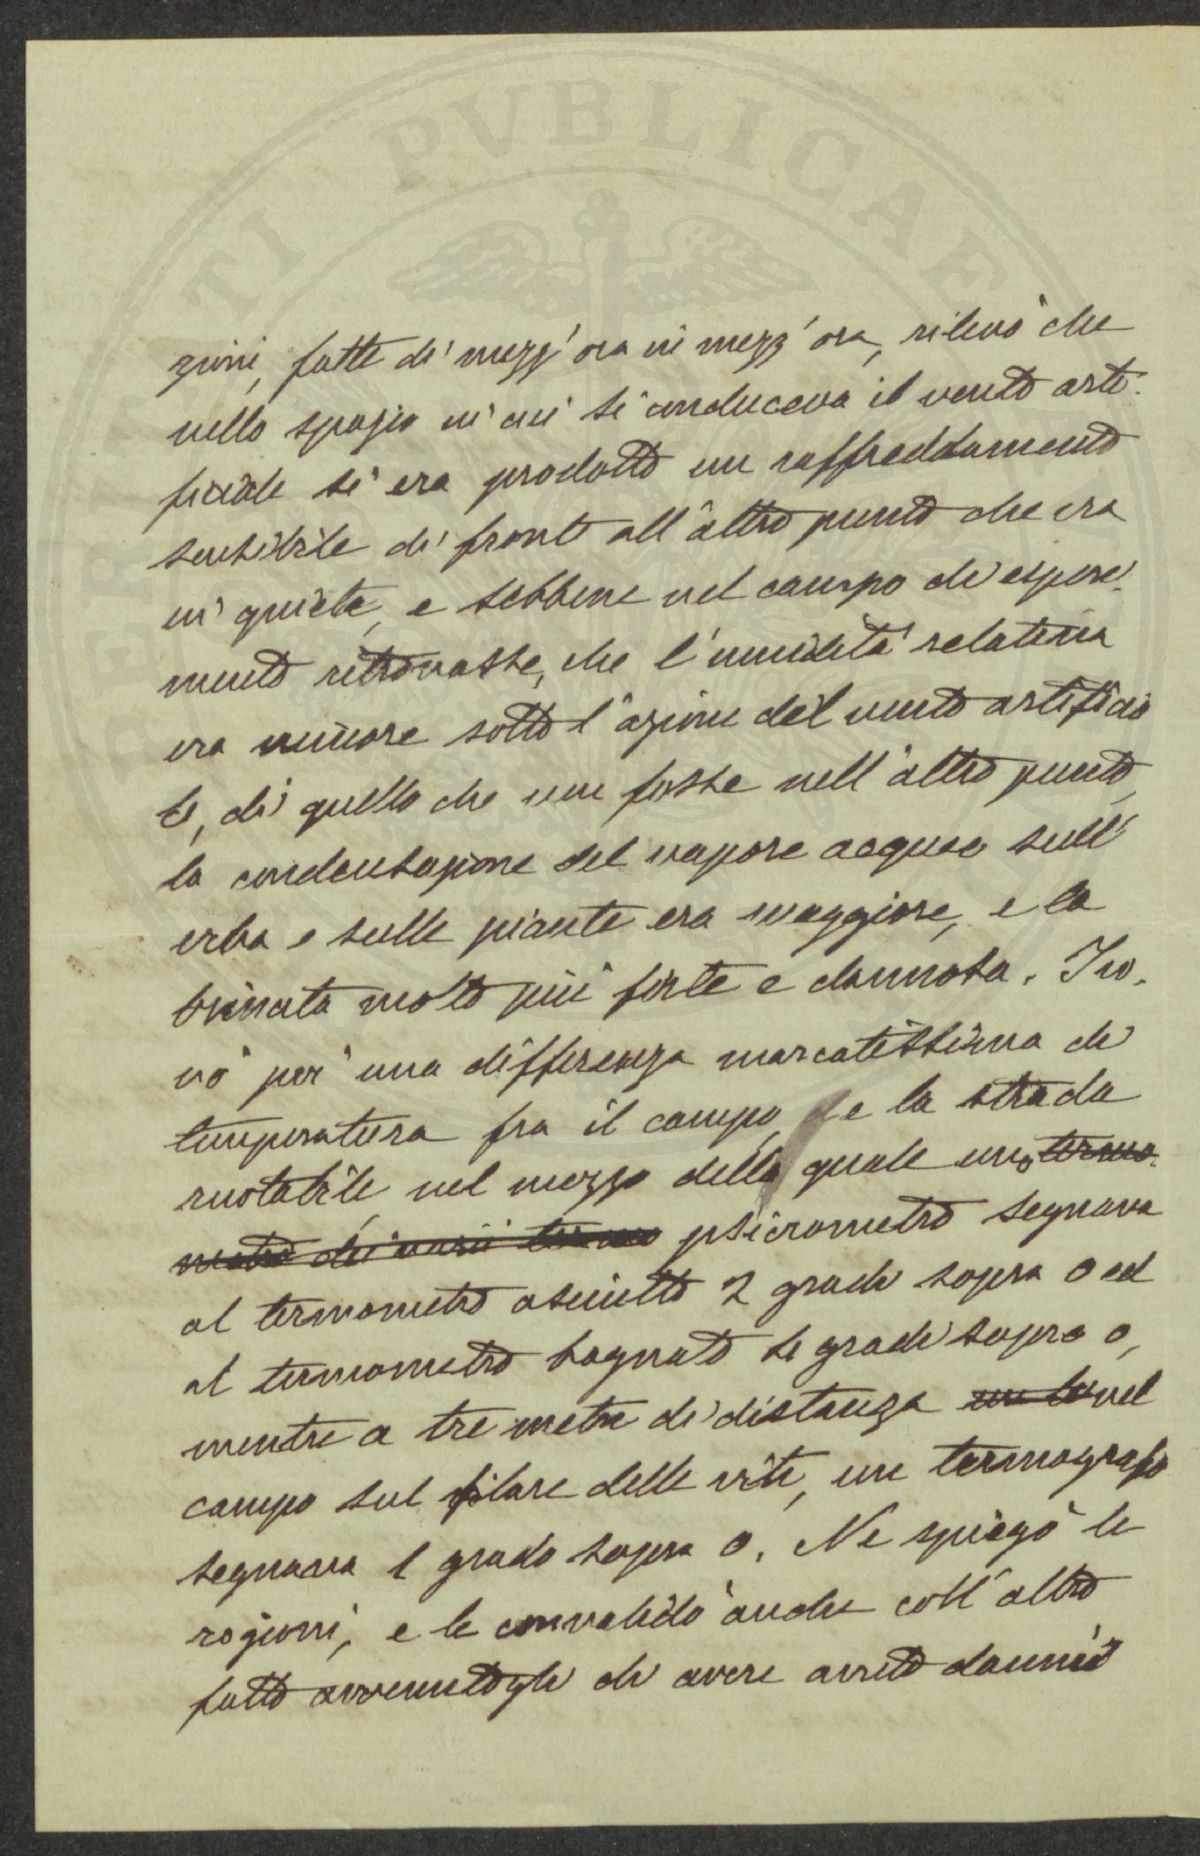 PRATI PVBLICAE
zioni, fatte di mezz'ora in mezz'ora, rilevò che
nello spazio in cui si conduceva il vento arti-
ficiale si era prodotto un raffreddamento
sensibile di fronte all'altro punto che era
in quiete, e sebbene nel campo di esperi-
mento ritrovasse, che l'umidità relativa
era minore sotto l'azione del vento artificia
le, di quello che non fosse nell'altro punto,
la condensazione del vapore acqueo sull'
erba e sulle piante era maggiore, e la
brinata molto più forte e dannosa. Tro-
vò poi una differenza marcatissima di
temperatura fra il campo, e la strada
ruotabile, nel mezzo della quale uno termo-
metro dei varii termo psicrometro segnava
al termometro asciutto 2 gradi sopra 0 ed
al termometro bagnato gradi sopra 0,
mentre a tre metri di distanza nel
campo sul filare delle viti, un termografo
segnava 1 grado sopra 0. Ne spiegò le
ragioni, e le convalidò anche coll'altro
fatto avvenutogli di avere avuto danni